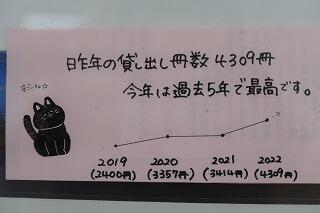 昨年の貸し出し冊数4309冊
今年は過去5年で最高です。
すごいねっ
2019 2020 2021 2022
(2400冊) (3357冊) (3414冊) (4309冊)